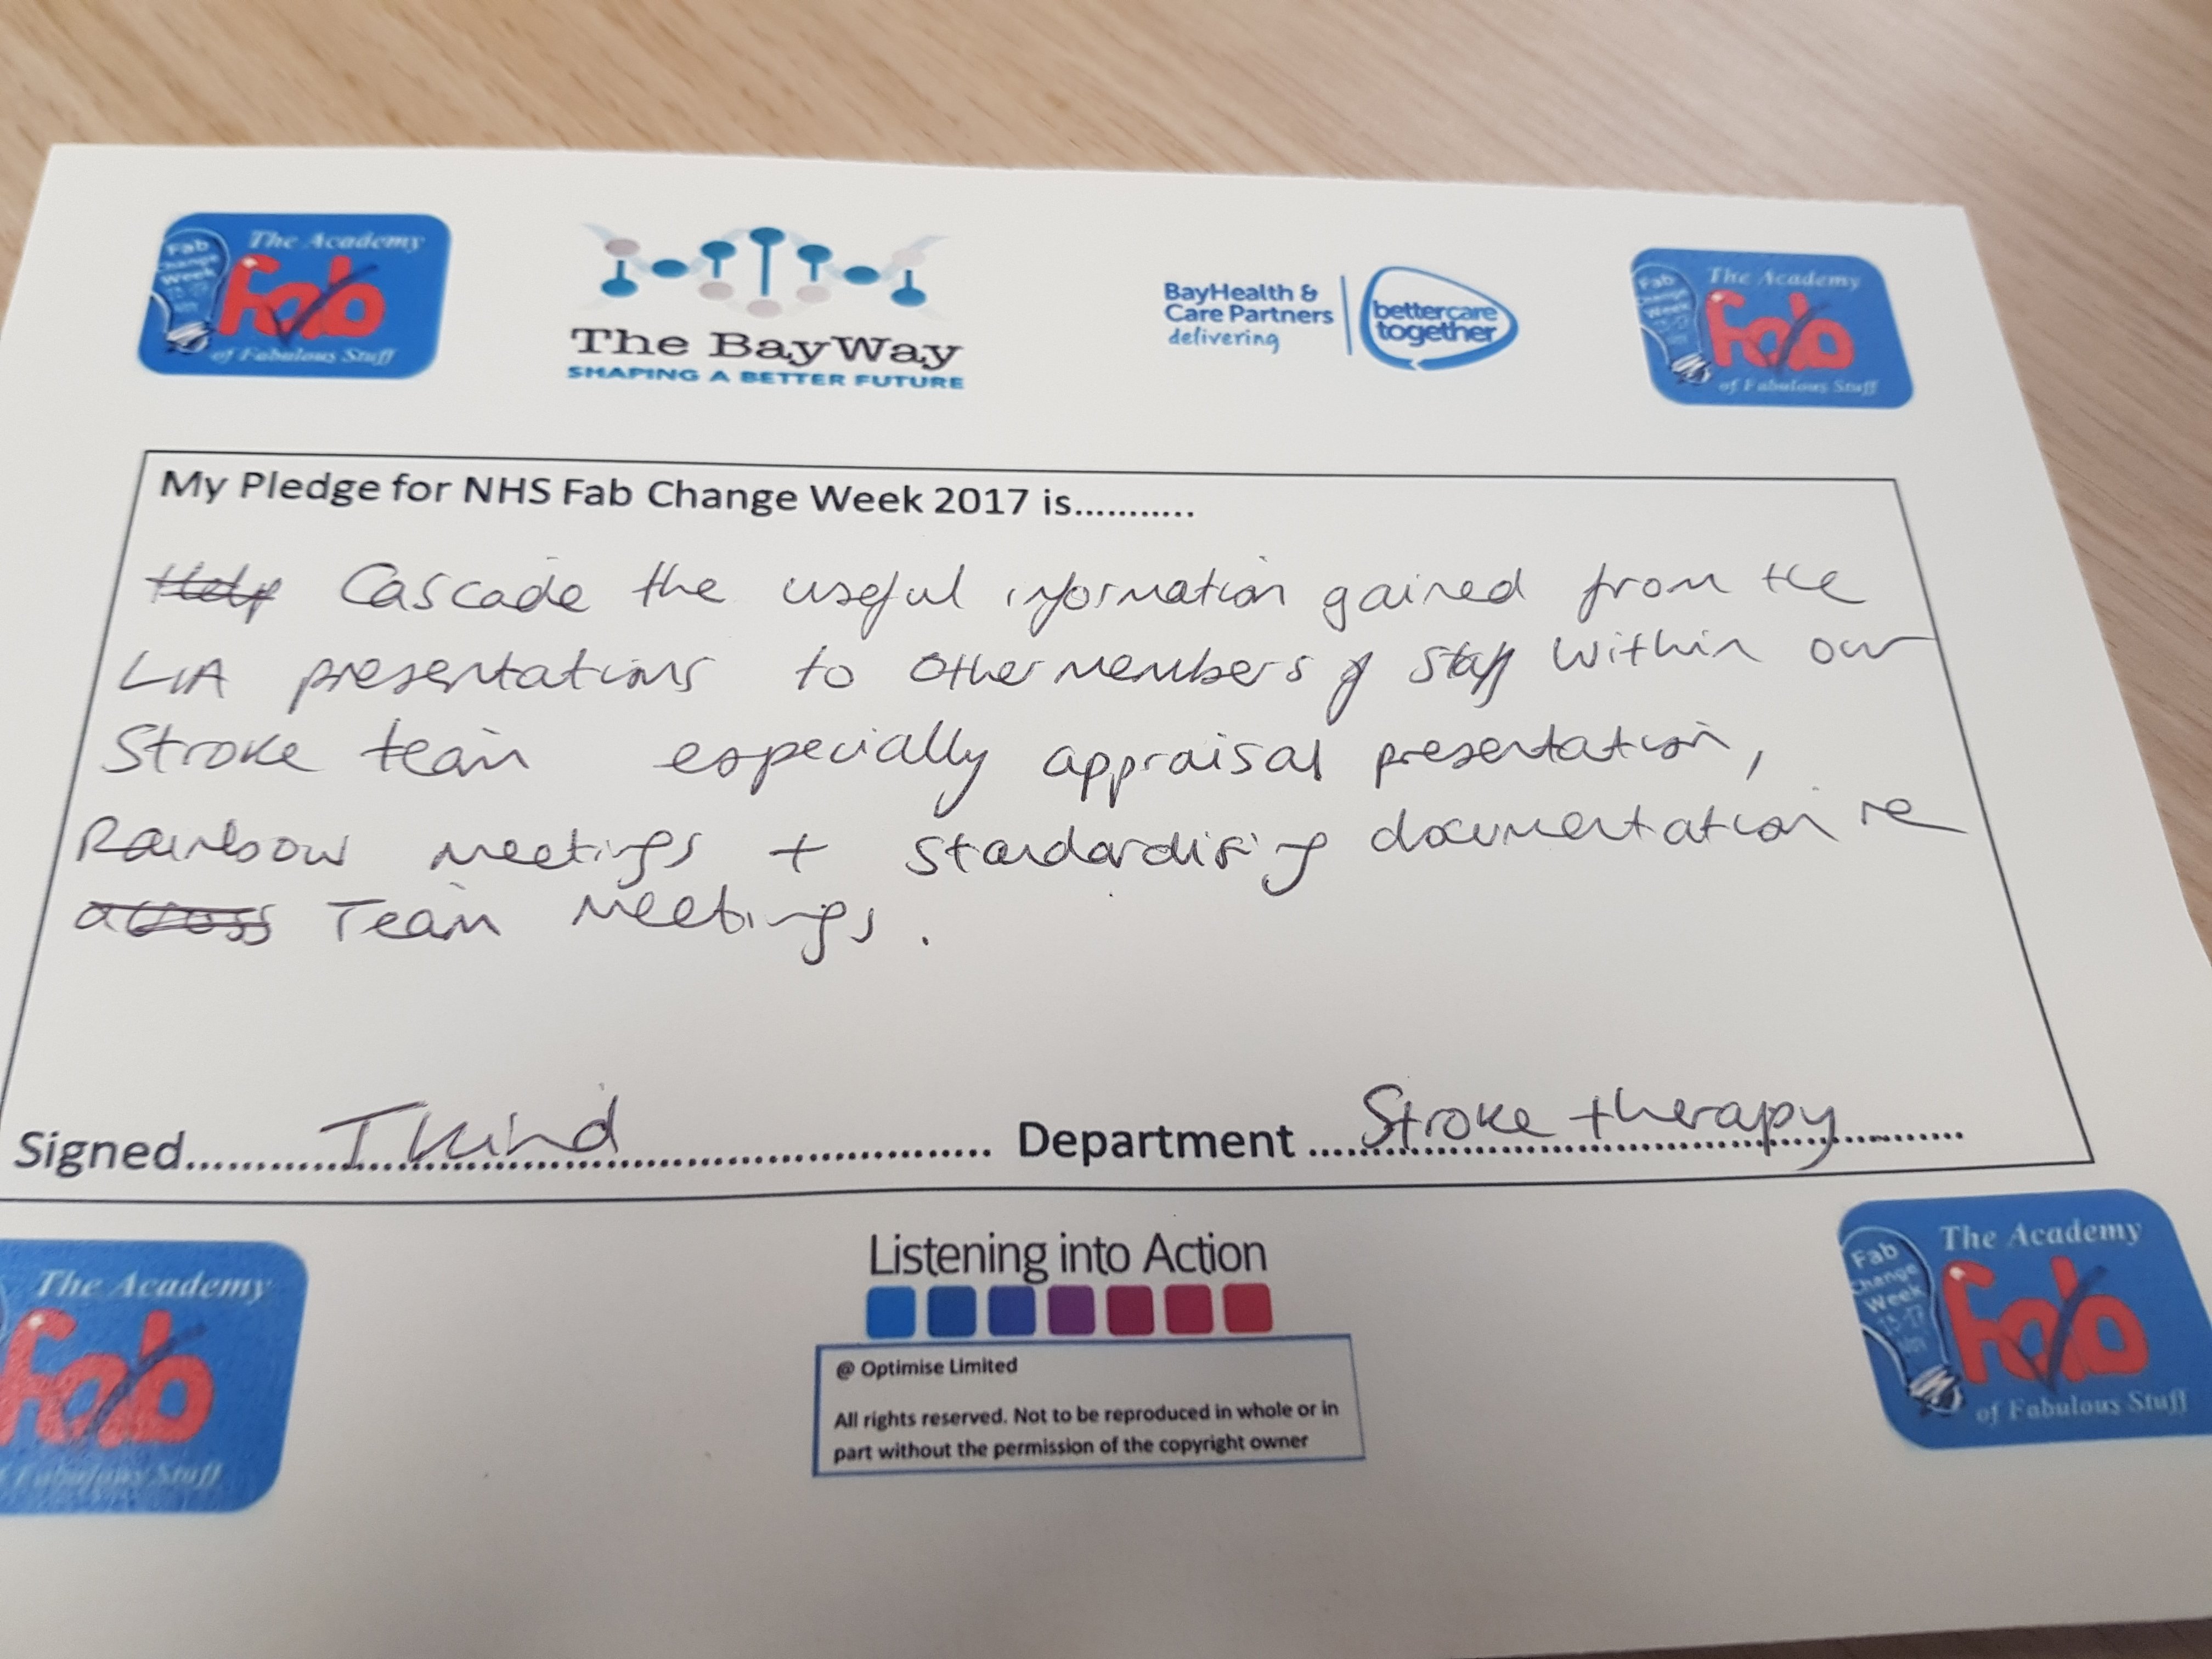 The Academy
Fab
Change
Week
Fab
of Fabulous Stuff
The BayWay
SHAPING A BETTER FUTURE
BayHealth &
Care Partners
delivering
bettercare
together
The Academy
Fab
Change
Week
Fab
of Fabulous Stuff
My Pledge for NHS Fab Change Week 2017 is...........
Help Cascade the useful information gained from the
LIA presentations to other members of staff within our
Stroke team especially appraisal presentation,
Rainbow meetings + standardising documentation re
across Team Meetings.
Signed Department Stroke therapy
The Academy
Fab
of Fabulous Stuff
Listening into Action
@ Optimise Limited
All rights reserved. Not to be reproduced in whole or in
part without the permission of the copyright owner
The Academy
Fab
Change
Week
Fab
of Fabulous Stuff